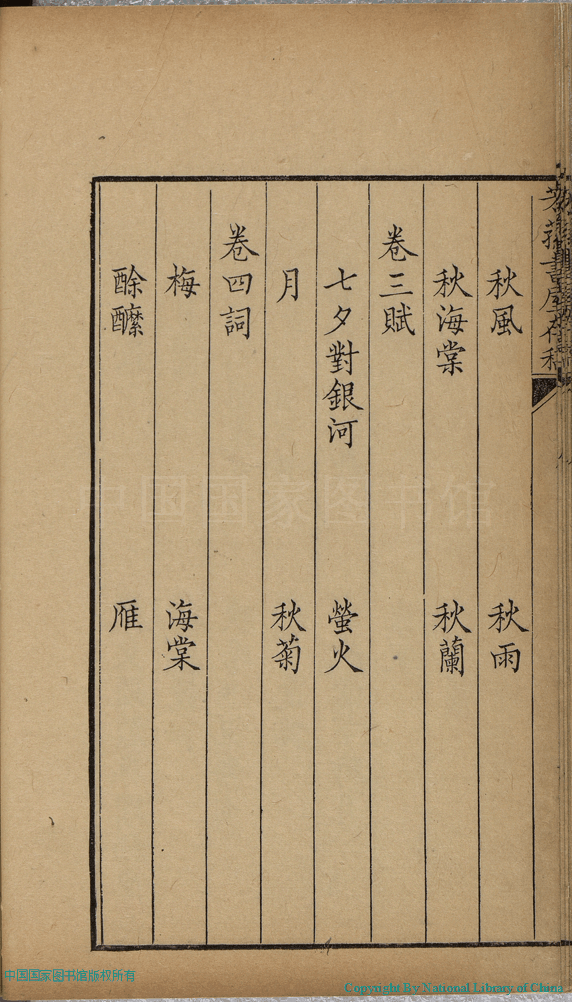 秋風　秋雨
秋海棠　秋蘭
卷三賦
七夕對銀河　螢火
月　秋菊
卷四詞
梅　海棠
酴醾　雁
中国国家图书馆
中国国家图书馆版权所有
Copyright By National Library of China